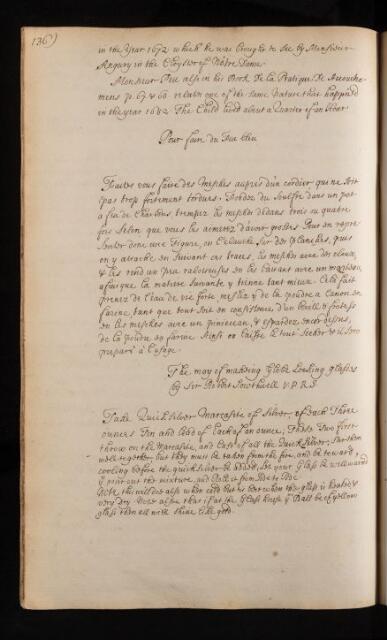 136)
in the Year 1672 which he was brought to see by Monsieur
in the Cloyster of Nôtre Dame.
Monsieur Peu also in his Book De la Pratique De Accouche-
mens p. 67 & 68 relates one of the same Nature that happen'd
in the year 1682 The Child lived about a Quarter of an Hour
Pour faire du Feu bleu
Faites vous faire des Mesches aupres d'un Cordier qui ne soit
pas trop fortement tordues, Fondez du Soulfre dans un pot
a feu de Charbons trempez les mesches dedans trois ou quatre
fois selon que vous les aimerez d'avoir grosses Pour en repre-
senter donc une Figure, ou sur des planches, puis
on y attache en suivant ces traces, les mesches avec des cloux,
& les rend un peu raboteuses en les battant avec un marteau
afin que la matiere suivante y tienne tant mieux. Cela fait
prenez de l'eau de vie forte meslez y de la poudre a Canon en
farine, tant que tout soit en consistence, d'un
les mesches avec un & espandez encor dessus,
de la poudre en farine ainsi on laisse le tout secher & il sera
preparé a l'usage.
The way of making Globe Looking glasses
by Sir Robert Southwell V.P.R.S.
Take Quicksilver Marcasite of Silver, of each Three
ounces Tin and Lead of Each of an ounce; These Two first
throw on the Marcasite, and Last of all the Quick Silver, Stir them
well together, but they must be taken from the fire, and be toward
cooling before the quicksilver be added, let your Glass be well warm'd
& pour out the mixture, and Roll it from side to side
Note this will doe also when cold but tis best when the glass is heated &
very dry Note also that if at the Glass house the Ball be of yellow
glass then all will shine like gold.